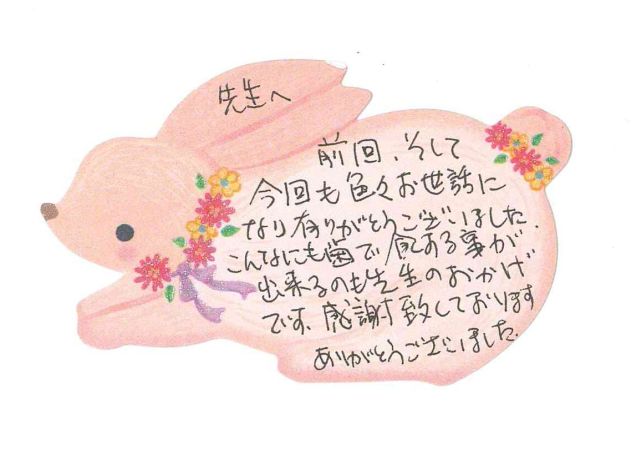 先生へ
前回、そして
今回も色々お世話に
なり有りがとうございました.
こんなにも歯で食ある事が
出来るのも先生のおかげ
です、感謝致しております
ありがとうございました.